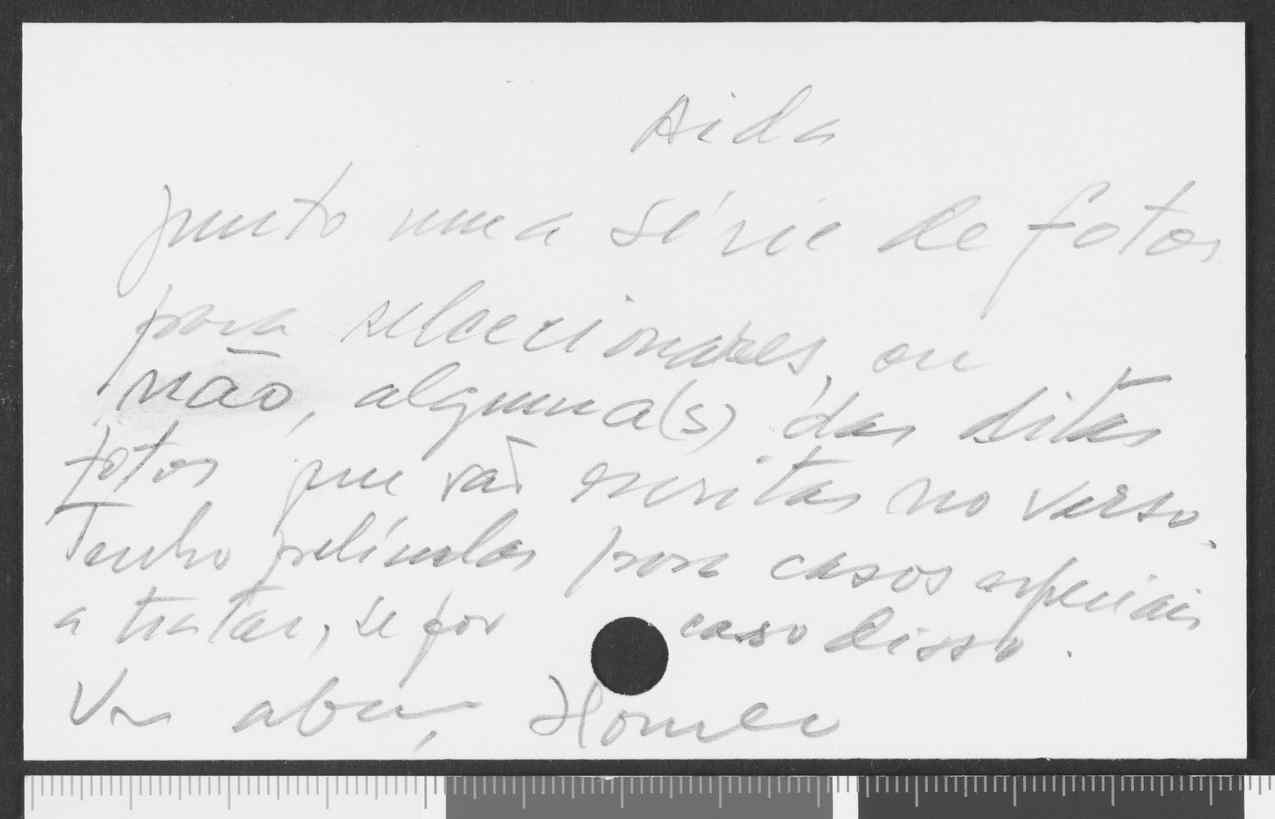 Aida
junto uma série de fotos
para seleccionares, ou
não, alguma(s) das ditas
fotos que vão escritas no verso.
Tenho películas para casos especiais
a tratar, se for caso disso.
Um abraço, Homem